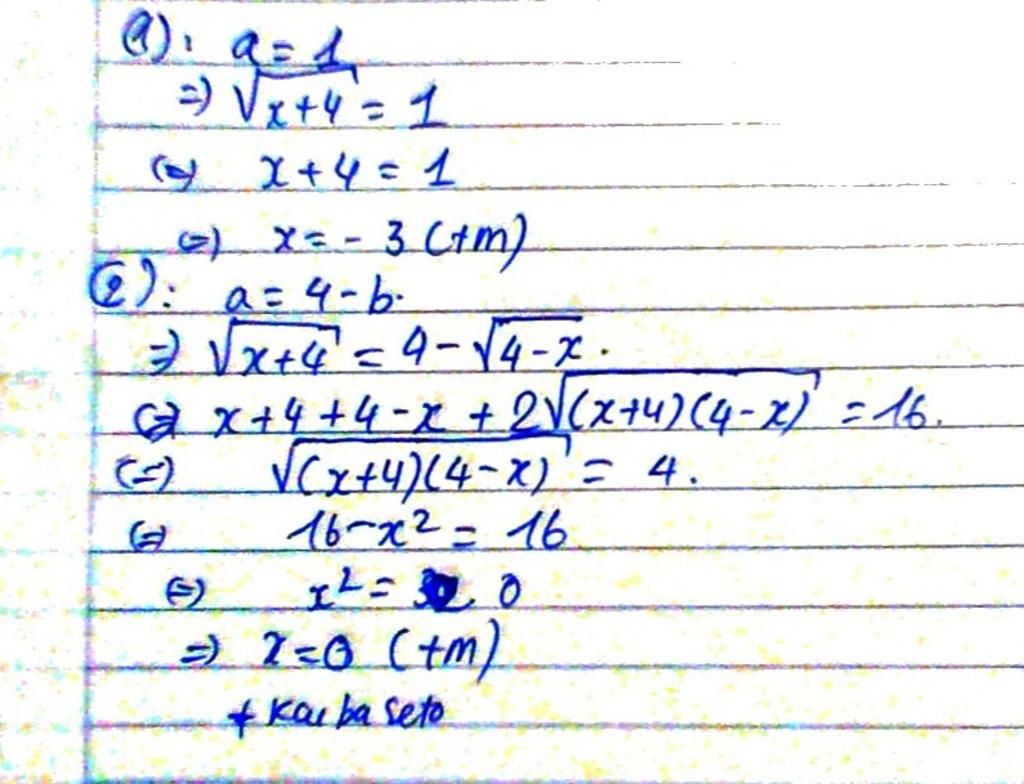 (1): a = 1
=> √(x+4) = 1
<=> x + 4 = 1
<=> x = - 3 (tm)
(2): a = 4 - b.
=> √(x+4) = 4 - √(4-x).
<=> x + 4 + 4 - x + 2√((x+4)(4-x)) = 16.
<=> √((x+4)(4-x)) = 4.
<=> 16 - x² = 16
<=> x² = 0
=> x = 0 (tm)